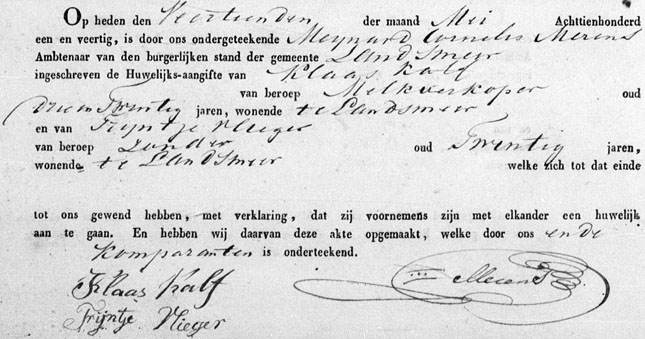 Op heden den Veertienden der maand Mei Achttienhonderd
een en veertig, is door ons ondergeteekende Meynard Cornelis Merens
Ambtenaar van den burgerlijken stand der gemeente Landsmeer
ingeschreven de Huwelijks-aangifte van Klaas Kalf
van beroep Melkverkoper oud
Drieen Twintig jaren, wonende te Landsmeer
en van Trijntje Vlieger
van beroep Zonder oud Twintig jaren,
wonende te Landsmeer welke zich tot dat einde
tot ons gewend hebben, met verklaring, dat zij voornemens zijn met elkander een huwelijk
aan te gaan. En hebben wij daarvan deze akte opgemaakt, welke door ons en de
komparanten is onderteekend.
Klaas Kalf
Merens
Trijntje Vlieger